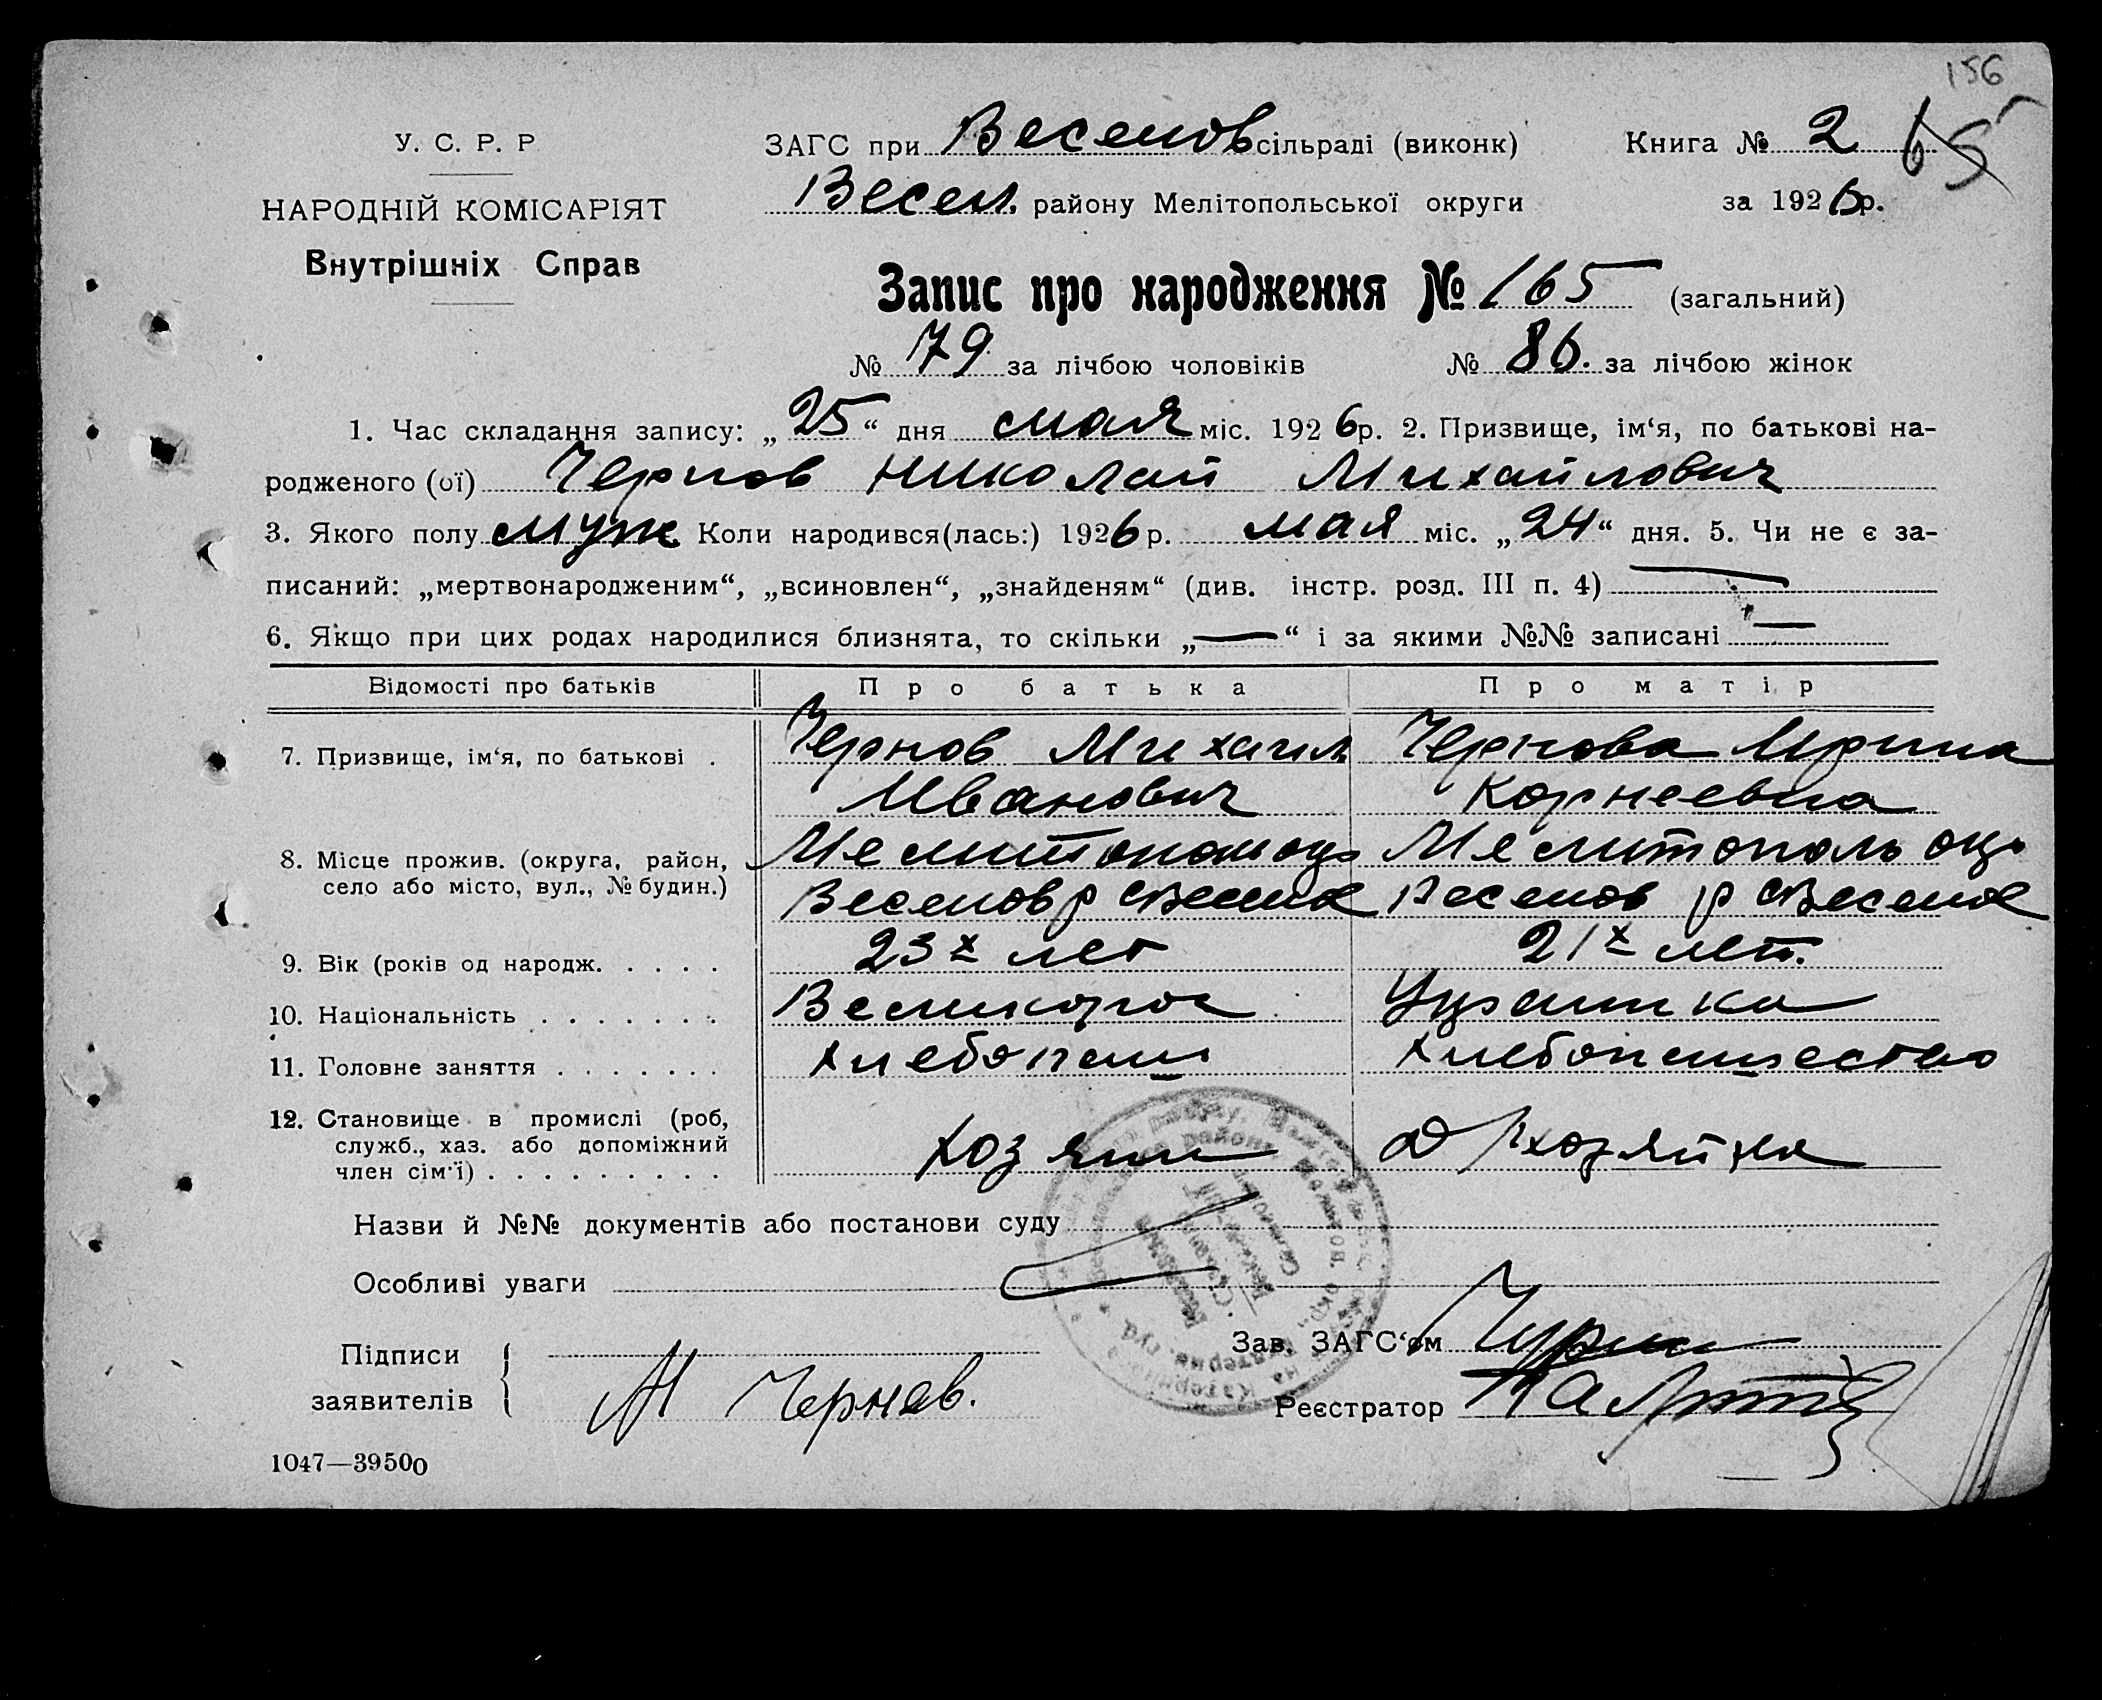 156
У. С. Р. Р
ЗАГС при Веселов сільраді (виконк)
Книга № 2 65
НАРОДНІЙ КОМІСАРІЯТ
Весел. району Мелітопольської округи
за 1926 р.
Внутрішніх Справ
Запис про народження № 165 (загальний)
№ 79 за лічбою чоловіків № 86. за лічбою жінок
1. Час складання запису: „25“ дня мая міс. 1926 р. 2. Призвище, ім‘я, по батькові на-
родженого (ої) Чернов Николай Михайлович
3. Якого полу муж. Коли народився(лась:) 1926 р. мая міс. „24“ дня. 5. Чи не є за-
писаний: „мертвонародженим“, „всиновлен“, „знайденям“ (див. інстр. розд. III п. 4) —
6. Якщо при цих родах народилися близнята, то скільки „—“ і за якими №№ записані —
Відомості про батьків Про батька Про матір
7. Призвище, ім‘я, по батькові . Чернов Михаил Чернова Ирина
Иванович Корнеевна
8. Місце прожив. (округа, район, Мелитополь окр Мелитополь окр
село або місто, вул., № будин.) Веселов р с Веселое Веселов р с Веселое
9. Вік (років од народж. . . . . 23х лет 21х лет.
10. Національність . . . . . . . Великорос Украинка
11. Головне заняття . . . . . . . хлебопаш хлебопашество
12. Становище в промислі (роб,
служб., хаз. або допоміжний
член сім‘ї) . . . . . . . . . хозяин хозяйка
Назви й №№ документів або постанови суду
Особливі уваги
Підписи
заявителів
М Чернов.
Зав. ЗАГС‘ом
Реєстратор
1047—39500